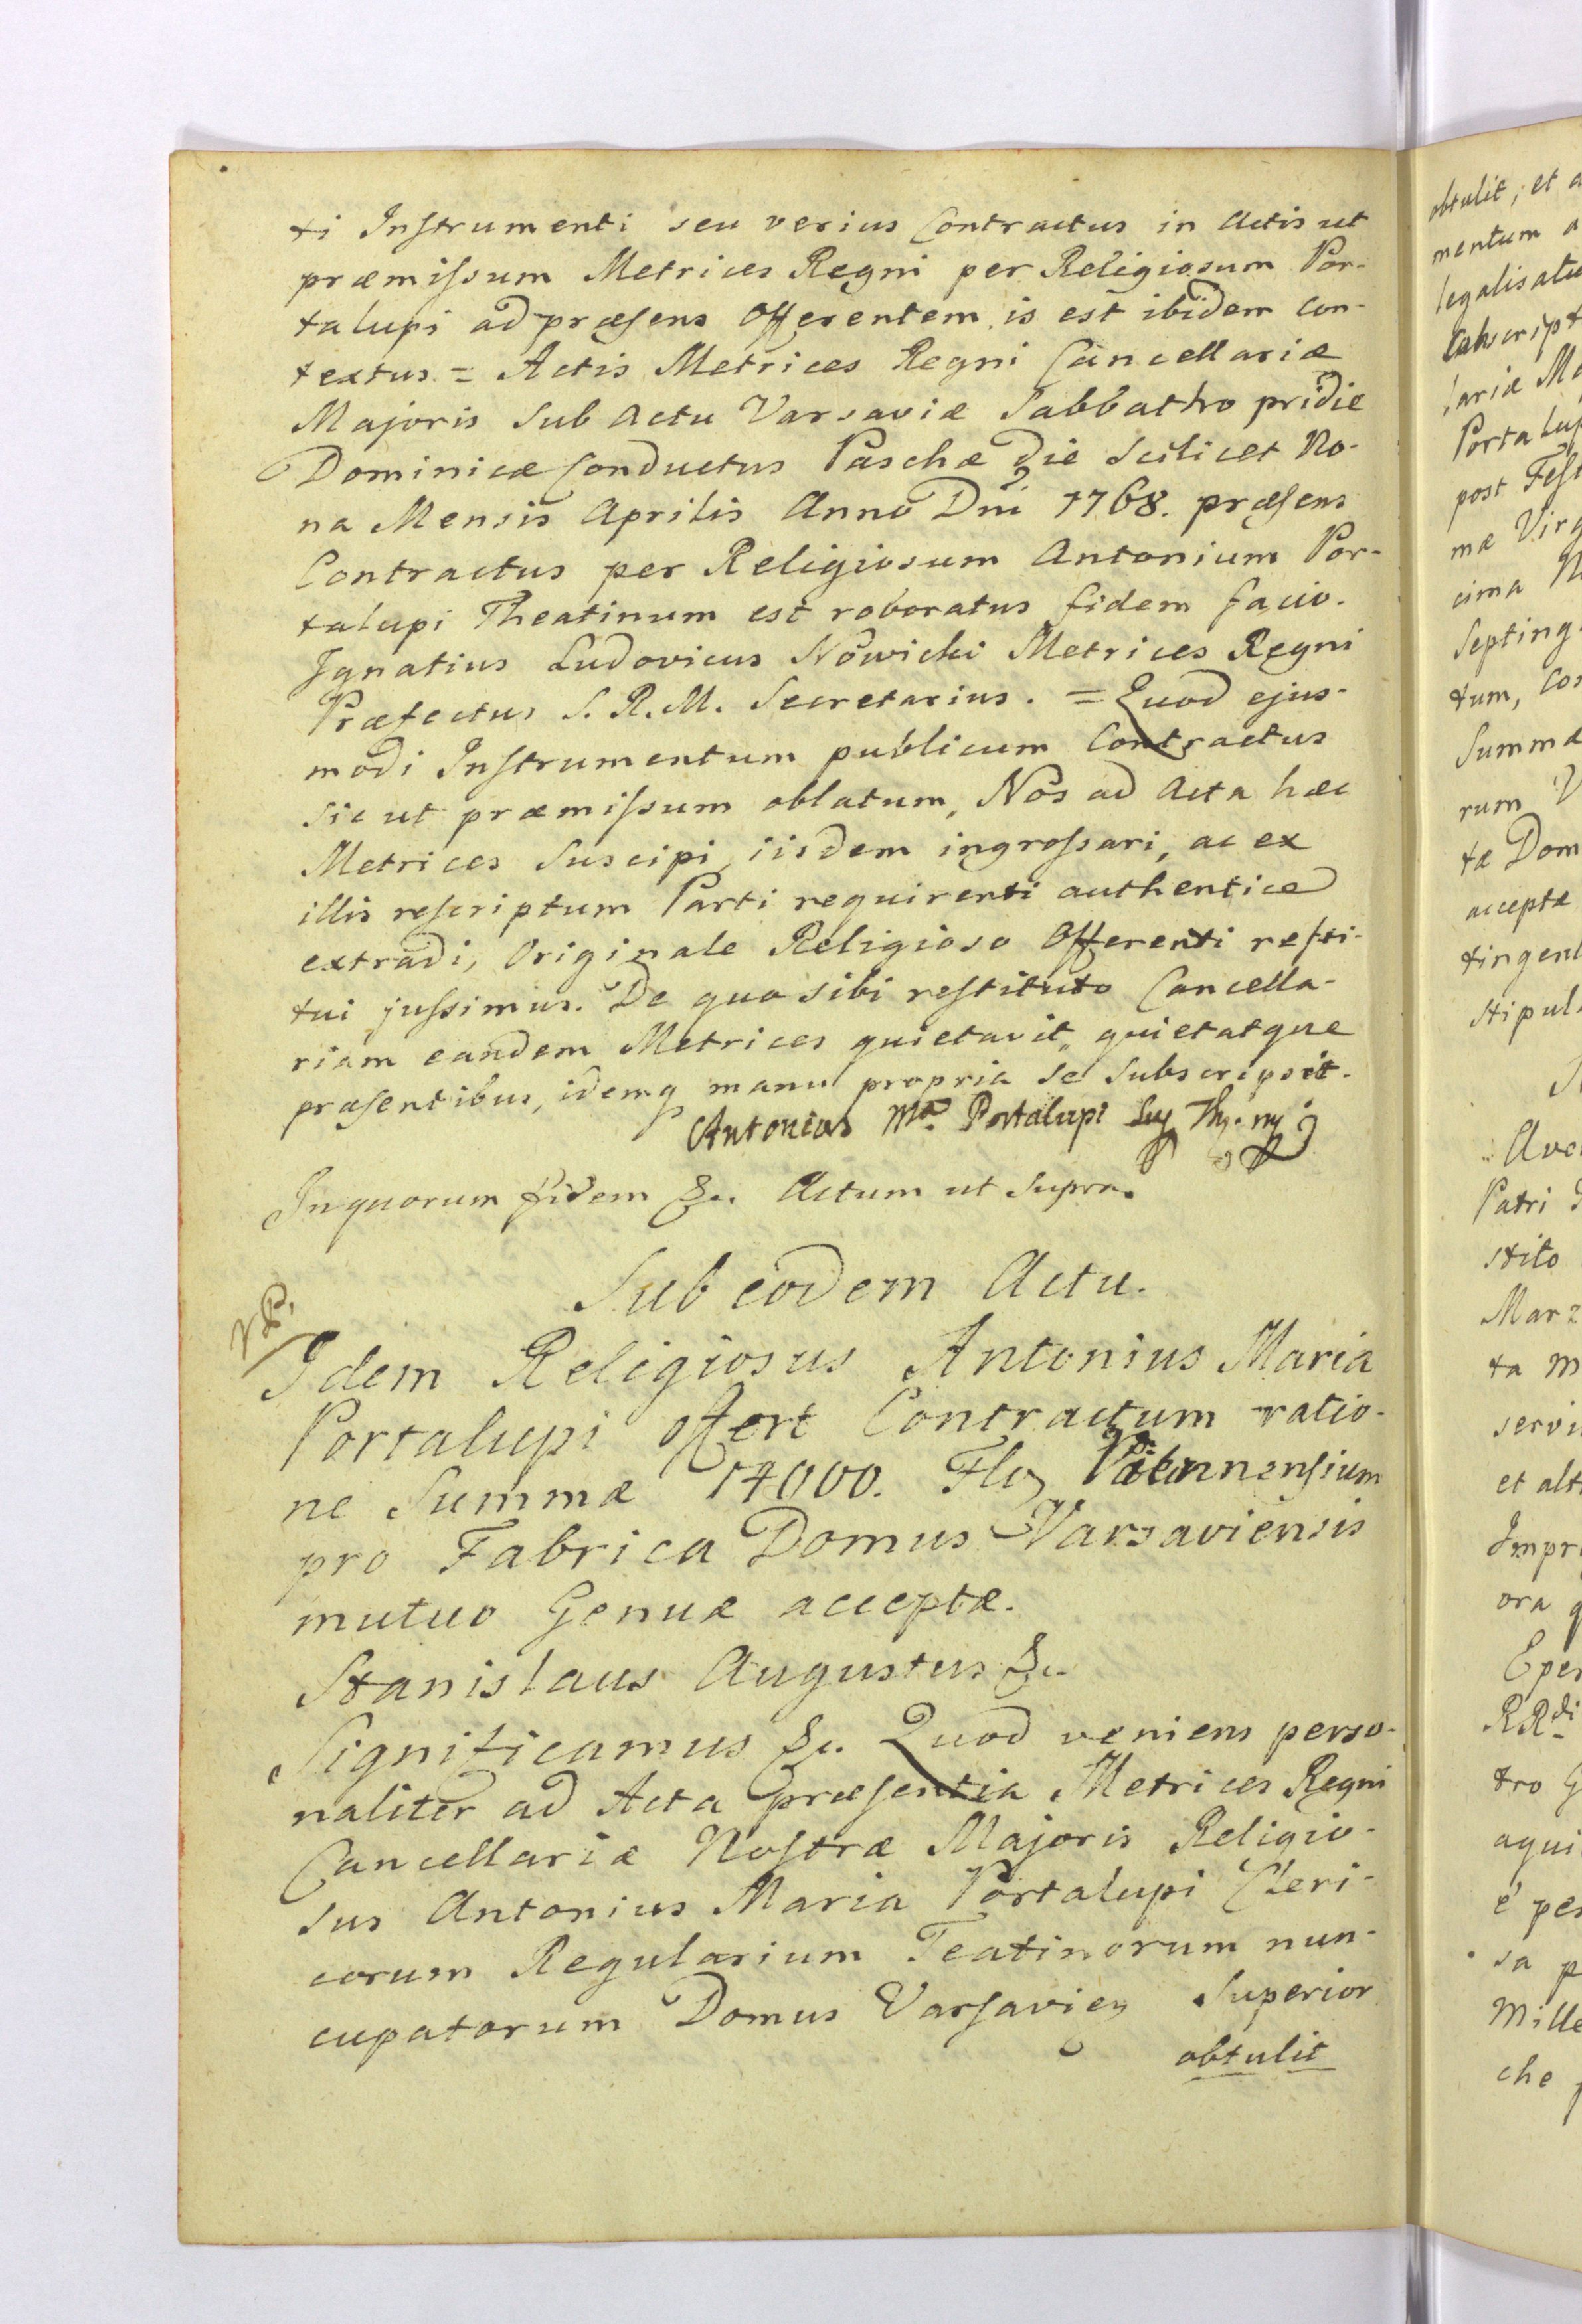 ti Instrumenti seu verius Contractus in Actis ut
præmissum Metrices Regni per Religiosum Por-
talupi ad præsens Offerentem is est ibidem con-
textus. = Actis Metrices Regni Cancellariæ
Majoris Sub Actu Varsaviæ Sabbatho pridie
Dominicæ Conductus Paschæ die Scilicet No-
na Mensis Aprilis Anno Dni 1768. præsens
Contractus per Religiosum Antonium Por-
talupi Theatinum est roboratus fidem facio.
Ignatius Ludovicus Nowicki Metrices Regni
Præfectus S. R. M. Secretarius. = Quod ejus-
modi Instrumentum publicum Contractus
sic ut præmissum oblatum, Nos ad Acta hæc
Metrices Suscipi, iisdem ingrossari, ac ex
illis rescriptum Parti requirenti authentice
extradi, Originale Religioso Offerenti resti-
tui jussimus. De quo sibi restituto Cancella-
riam eandem Metrices quietavit, quietatque
præsentibus, idemq manu propria se Subscripsit.
Antonius Ma. Portalupi
In quorum fidem &c. Actum ut Supra.
Sub eodem Actu.
Idem Religiosus Antonius Maria
Portalupi offert Contractum ratio-
ne Summæ 14000. Flo
pro Fabrica Domus Varsaviensis
mutuo Genuæ acceptæ.
Stanislaus Augustus &c.
Significamus &c. Quod veniens perso-
naliter ad Acta præsentia Metrices Regni
Cancellariæ Nostræ Majoris Religio-
sus Antonius Maria Portalupi Cleri-
corum Regularium Teatinorum nun-
cupatorum Domus Varsavien Superior
obtulit
obtulit; et a
mentum a
legalisatu
laria Ma
Portalup
post Fest
mæ Virg
cima M
Septing
tum, Con
Summa
rum V
tæ Dom
acceptæ
tingent
stipul
Ave
Patri
stito
Marz
ta m
servi
et alt
Impr
ora q
Eper
RRdi
tro G
aqui
è per
sa p
Mille
che